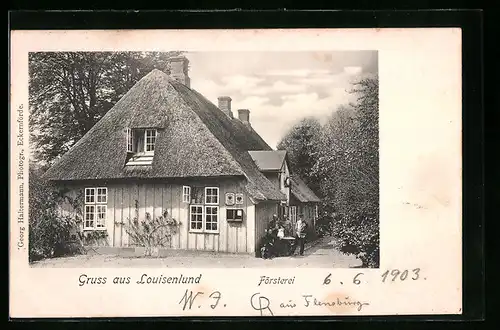 Georg Haltermann, Photogr., Eckernförde.
Gruss aus Louisenlund Försterei 6. 6 1903.
W. J. aus Flensburg